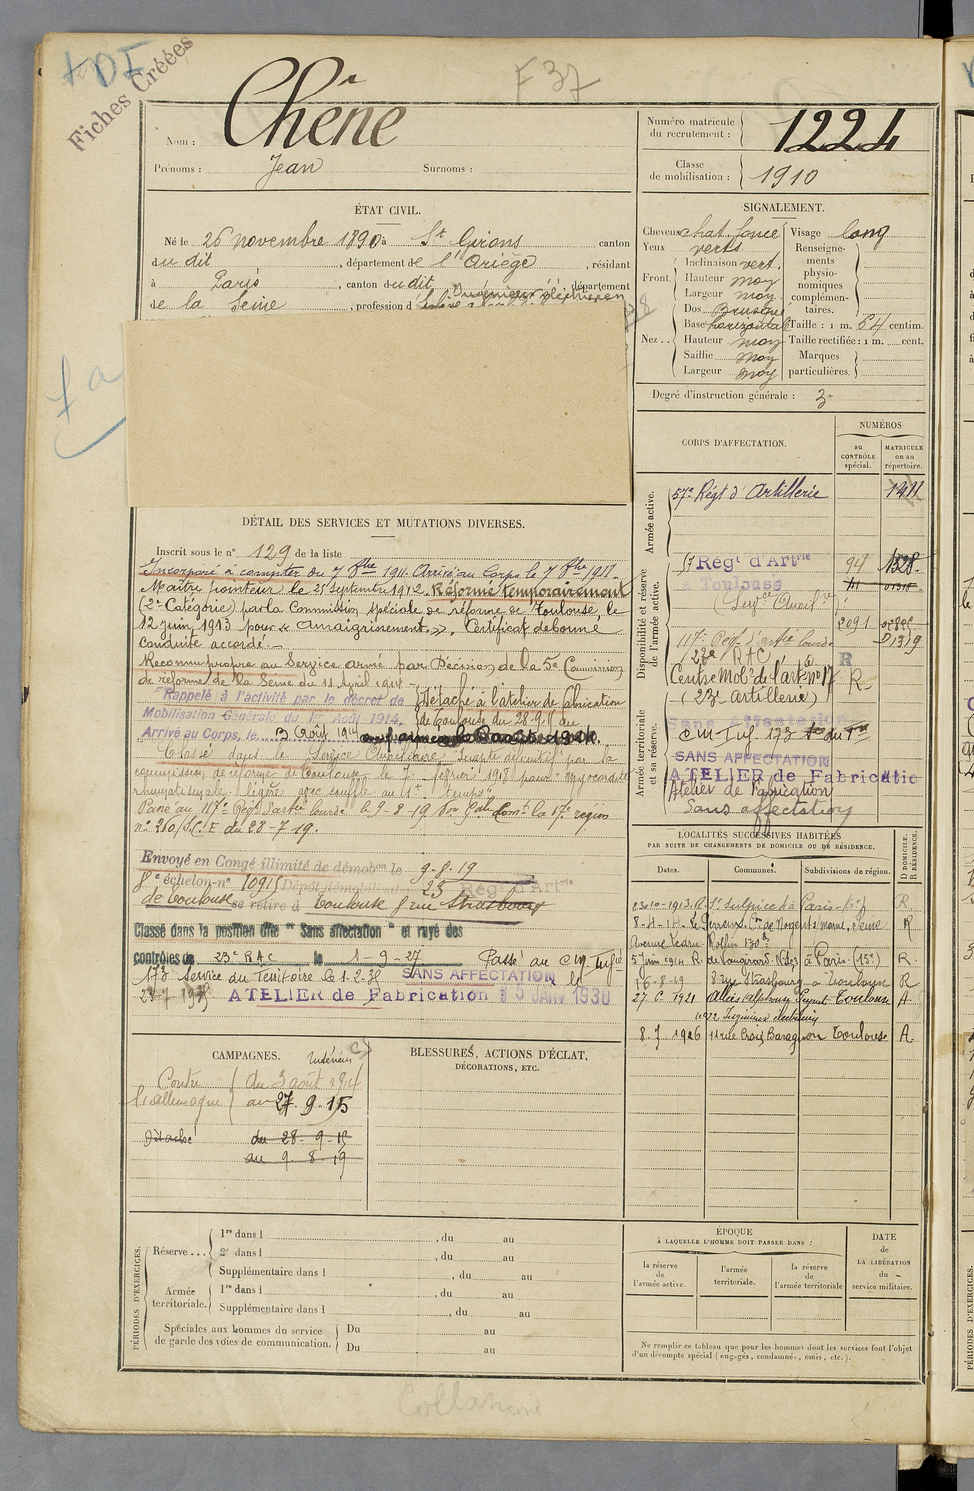 + DI
Fiches Créées
F 37
Nom : Chêne
Prénoms : Jean Surnoms :
Numéro matricule du recrutement : 1224
Classe de mobilisation : 1910
ÉTAT CIVIL.
Né le 26 novembre 1890 à St Girons canton
du dit, département de l'Ariège, résidant
à Paris, canton du dit, département
de la Seine, profession d
SIGNALEMENT.
Cheveux chat. foncé
Yeux verts
Front. Inclinaison vert.
Hauteur moy
Largeur moy.
Nez .. Dos Brusque
Base horizontal
Hauteur moy
Saillie moy
Largeur moy
Visage long
Renseignements physionomiques complémentaires.
Taille : 1 m. 64 centim.
Taille rectifiée : 1 m. cent.
Marques particulières.
Degré d'instruction générale : 3
DÉTAIL DES SERVICES ET MUTATIONS DIVERSES.
Inscrit sous le n° 129 de la liste
Incorporé à compter du 7 8bre 1911. Arrivé au Corps le 7 8bre 1911.
Maître pointeur le 25 septembre 1912. Réformé temporairement
(2e Catégorie) par la Commission spéciale de réforme de Toulouse le
12 juin 1913 pour « amaigrissement. ». Certificat de bonne
conduite accordé. —
Reconnu propre au Service armé par Décision de la 5e Commission
de réforme de la Seine du 11 Avril 1914 -
Rappelé à l'activité par le décret de
Mobilisation Générale du 1er Août 1914.
Arrivé au Corps, le 3 Août 1914
Détaché à l'atelier de fabrication
de Toulouse du 28-9-15 au
Classé dans le Service Auxiliaire, Inapte définitif par la
commission de réforme de Toulouse le 7 février 1918 pour "myocardite
rhumatismale légère avec souffle au 1er temps"
Passé au 117e Régt d'artie lourde le 9-8-19 la 17e région
n° 260 du 28-7-19.
Envoyé en Congé illimité de démobon le 9-8-19
8e échelon n° 10915 Dépôt démobilisateur 23 Régt d'Artrie
de Toulouse se retire à Toulouse 8 rue Strasbourg
Classé dans la position dite "Sans affectation" et rayé des
contrôles du 23e RAC le 1-9-27 Passé au cm Infie
173 Service du Territoire le 1.2.38 SANS AFFECTATION le
ATELIER de Fabrication 15 JANV 1930
CORPS D'AFFECTATION.
NUMÉROS
au CONTRÔLE spécial.
MATRICULE ou au répertoire.
Armée active.
57e Régt d'Artillerie 1411
Disponibilité et réserve de l'armée active.
57 Régt d'Artrie 94 1328
à Toulouse
2091
117e Régt d'artie lourde D1319
23e RAC R
Centre Mobre de l'artie N° 17 R
(23e Artillerie)
Armée territoriale et sa réserve.
Sans Affectation
cm Inf. 173
SANS AFFECTATION
ATELIER de Fabricatio
Atelier de Fabrication
Sans affectation
LOCALITÉS SUCCESSIVES HABITÉES
PAR SUITE DE CHANGEMENTS DE DOMICILE OU DE RÉSIDENCE.
Dates. Communes. Subdivisions de région. D DOMICILE. R RÉSIDENCE.
R. St Sulpice à Paris R.
8-4-14. Le Perreux Con de Nogent s/marne, Seine R
Avenue Ledru Rollin
5 juin 1914 R. de Vaugirard à Paris (15e) R.
16-8-19 8 rue Strasbourg à Toulouse R
27 1921 Allées Alphonse Peyrat Toulouse A
1922 Ingénieur électricien
8. 7 1926 11 rue Croix Baragnon Toulouse A
CAMPAGNES. Intérieur
Contre l'Allemagne du 3 août 1914
au 27. 9. 15
Détaché du 28-9-15
au 9-8-19
BLESSURES, ACTIONS D'ÉCLAT,
DÉCORATIONS, ETC.
PÉRIODES D'EXERCICES.
Réserve ... 1re dans l , du au
2e dans l , du au
Supplémentaire dans l , du au
Armée territoriale. 1re dans l , du au
Supplémentaire dans l , du au
Spéciales aux hommes du service de garde des voies de communication. Du au
Du au
ÉPOQUE
À LAQUELLE L'HOMME DOIT PASSER DANS :
la réserve de l'armée active.
l'armée territoriale.
la réserve de l'armée territoriale
DATE de LA LIBÉRATION du service militaire.
Ne remplir ce tableau que pour les hommes dont les services font l'objet
d'un décompte spécial (engagés, condamnés, omis, etc.).